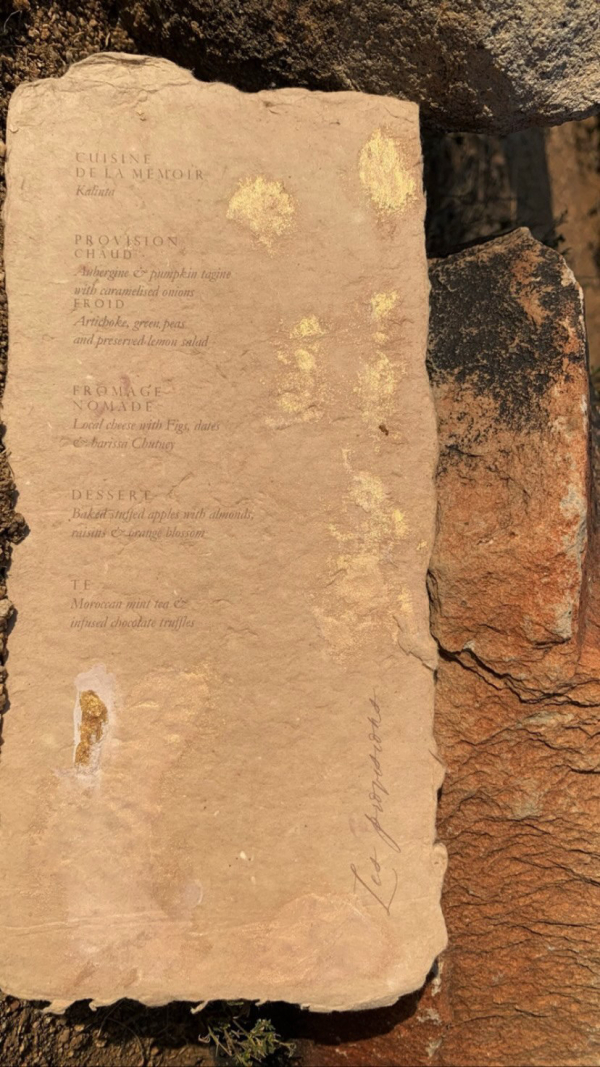 CUISINE
DE LA MÉMOIR
Kaliuta
PROVISION
CHAUD
Aubergine & pumpkin tagine
with caramelised onions
FROID
Artichoke, green peas
and preserved lemon salad
FROMAGE
NOMADE
Local cheese with Figs, dates
& harissa Chutney
DESSERT
Baked stuffed apples with almonds,
raisins & orange blossom
TE
Moroccan mint tea &
infused chocolate truffles
Les provisions